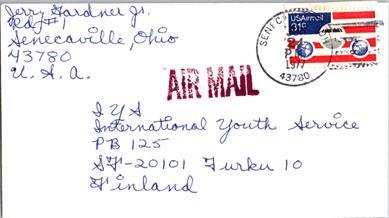 Jerry Gardner Jr.
Rd #1
Senecaville, Ohio
43780
U.S.A.
AIR MAIL
USAirmail
31c
SENEC
24
1977
43780
IYS
International Youth Service
PB 125
SF-20101 Turku 10
Finland